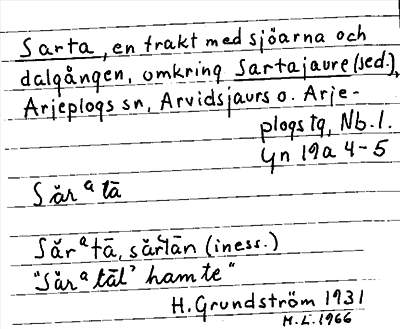 Sarta, en trakt med sjöarna och
dalgången, omkring Sartajaure (sed.),
Arjeplogs sn, Arvidsjaurs o. Arje-
plogs tg, Nb. l.
Gn 19a 4-5
Sărᵃtā
Sărᵃtā, sărtān (iness.)
"Sărᵃtāl' hamte"
H. Grundström 1931
M.L. 1966